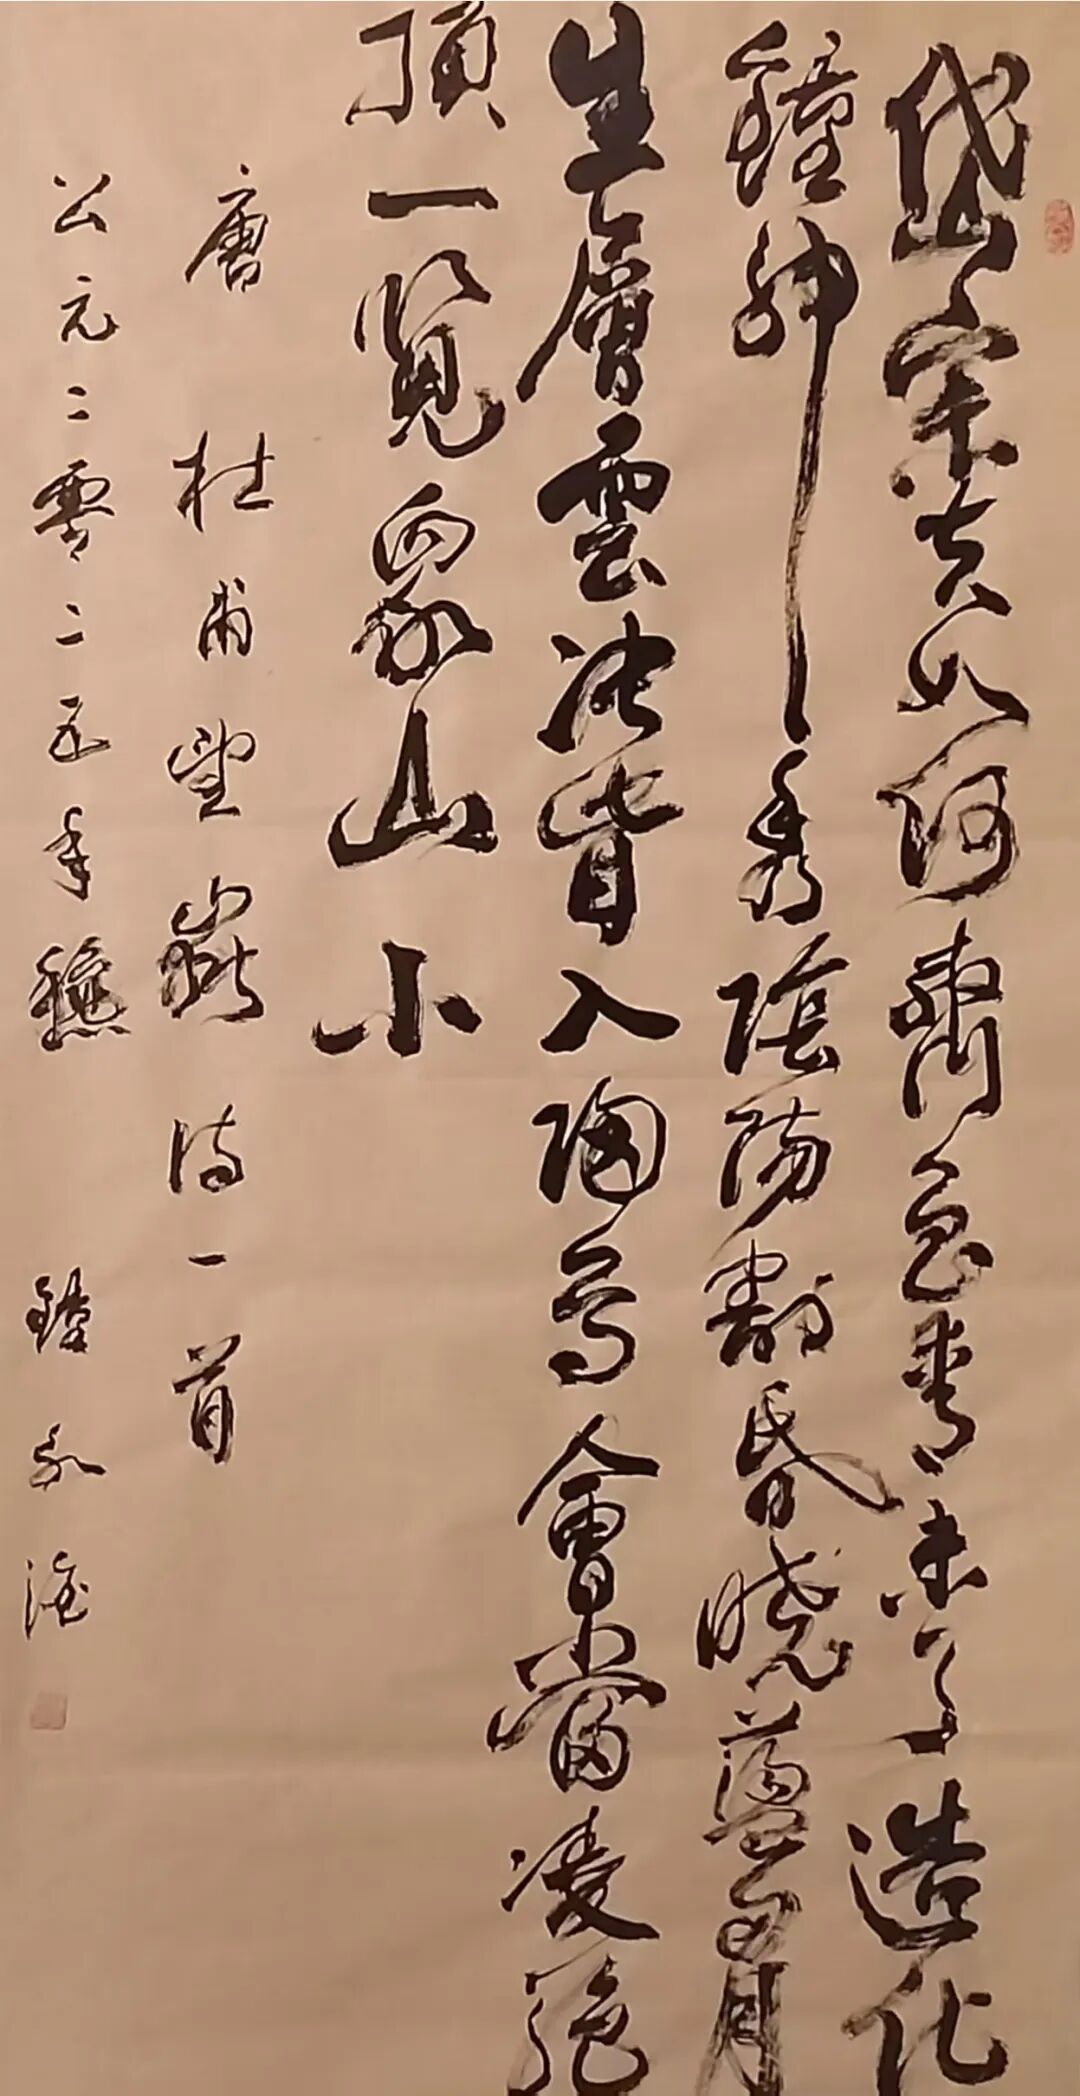 岱宗夫如何齊魯青未了造化
鐘神秀陰陽割昏曉蕩胸
生層雲決眥入歸鳥會當凌絕
頂一覽眾山小
唐杜甫望嶽詩一首
公元二零二五年穐永